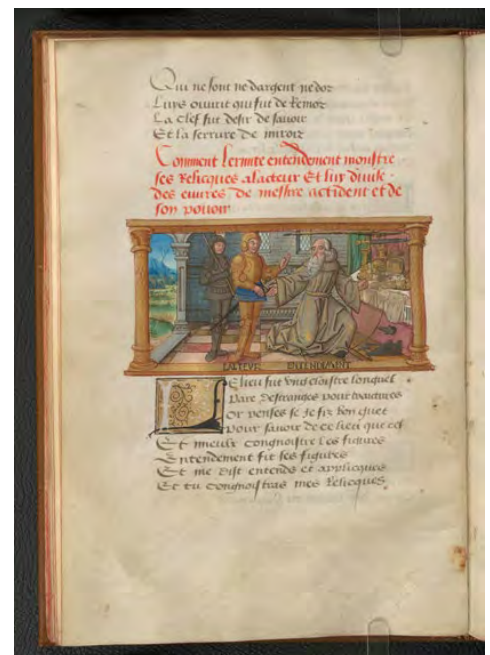 Qui ne sont ne dargent ne dor
Luys ouurit qui fut de Remor
La clef fut desir de sauoir
Et la serrure de miroir
Comment Lermite entendement monstre
ses Relicques a lacteur Et luy diuise
des euures de messire accident et de
son pouoir
LACTEVR ENTENDEMENT
Le lieu fut vng cloistre lonquel
pare destranges pourtraictures
Or penses se Je fis bon guet
pour sauoir de ce lieu que cest
Et mieulx congnoistre Les figures
Entendement fit ses figures
Et me dist entends et applicques
Et tu congnoistras mes Relicques